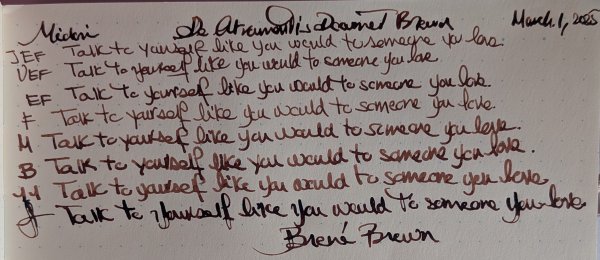 Midori De Atramentis Document Brown March 1, 2025
JEF Talk to yourself like you would to someone you love.
UEF Talk to yourself like you would to someone you love.
EF Talk to yourself like you would to someone you love.
F Talk to yourself like you would to someone you love.
M Talk to yourself like you would to someone you love.
B Talk to yourself like you would to someone you love.
Talk to yourself like you would to someone you love.
Talk to yourself like you would to someone you love.
Brené Brown